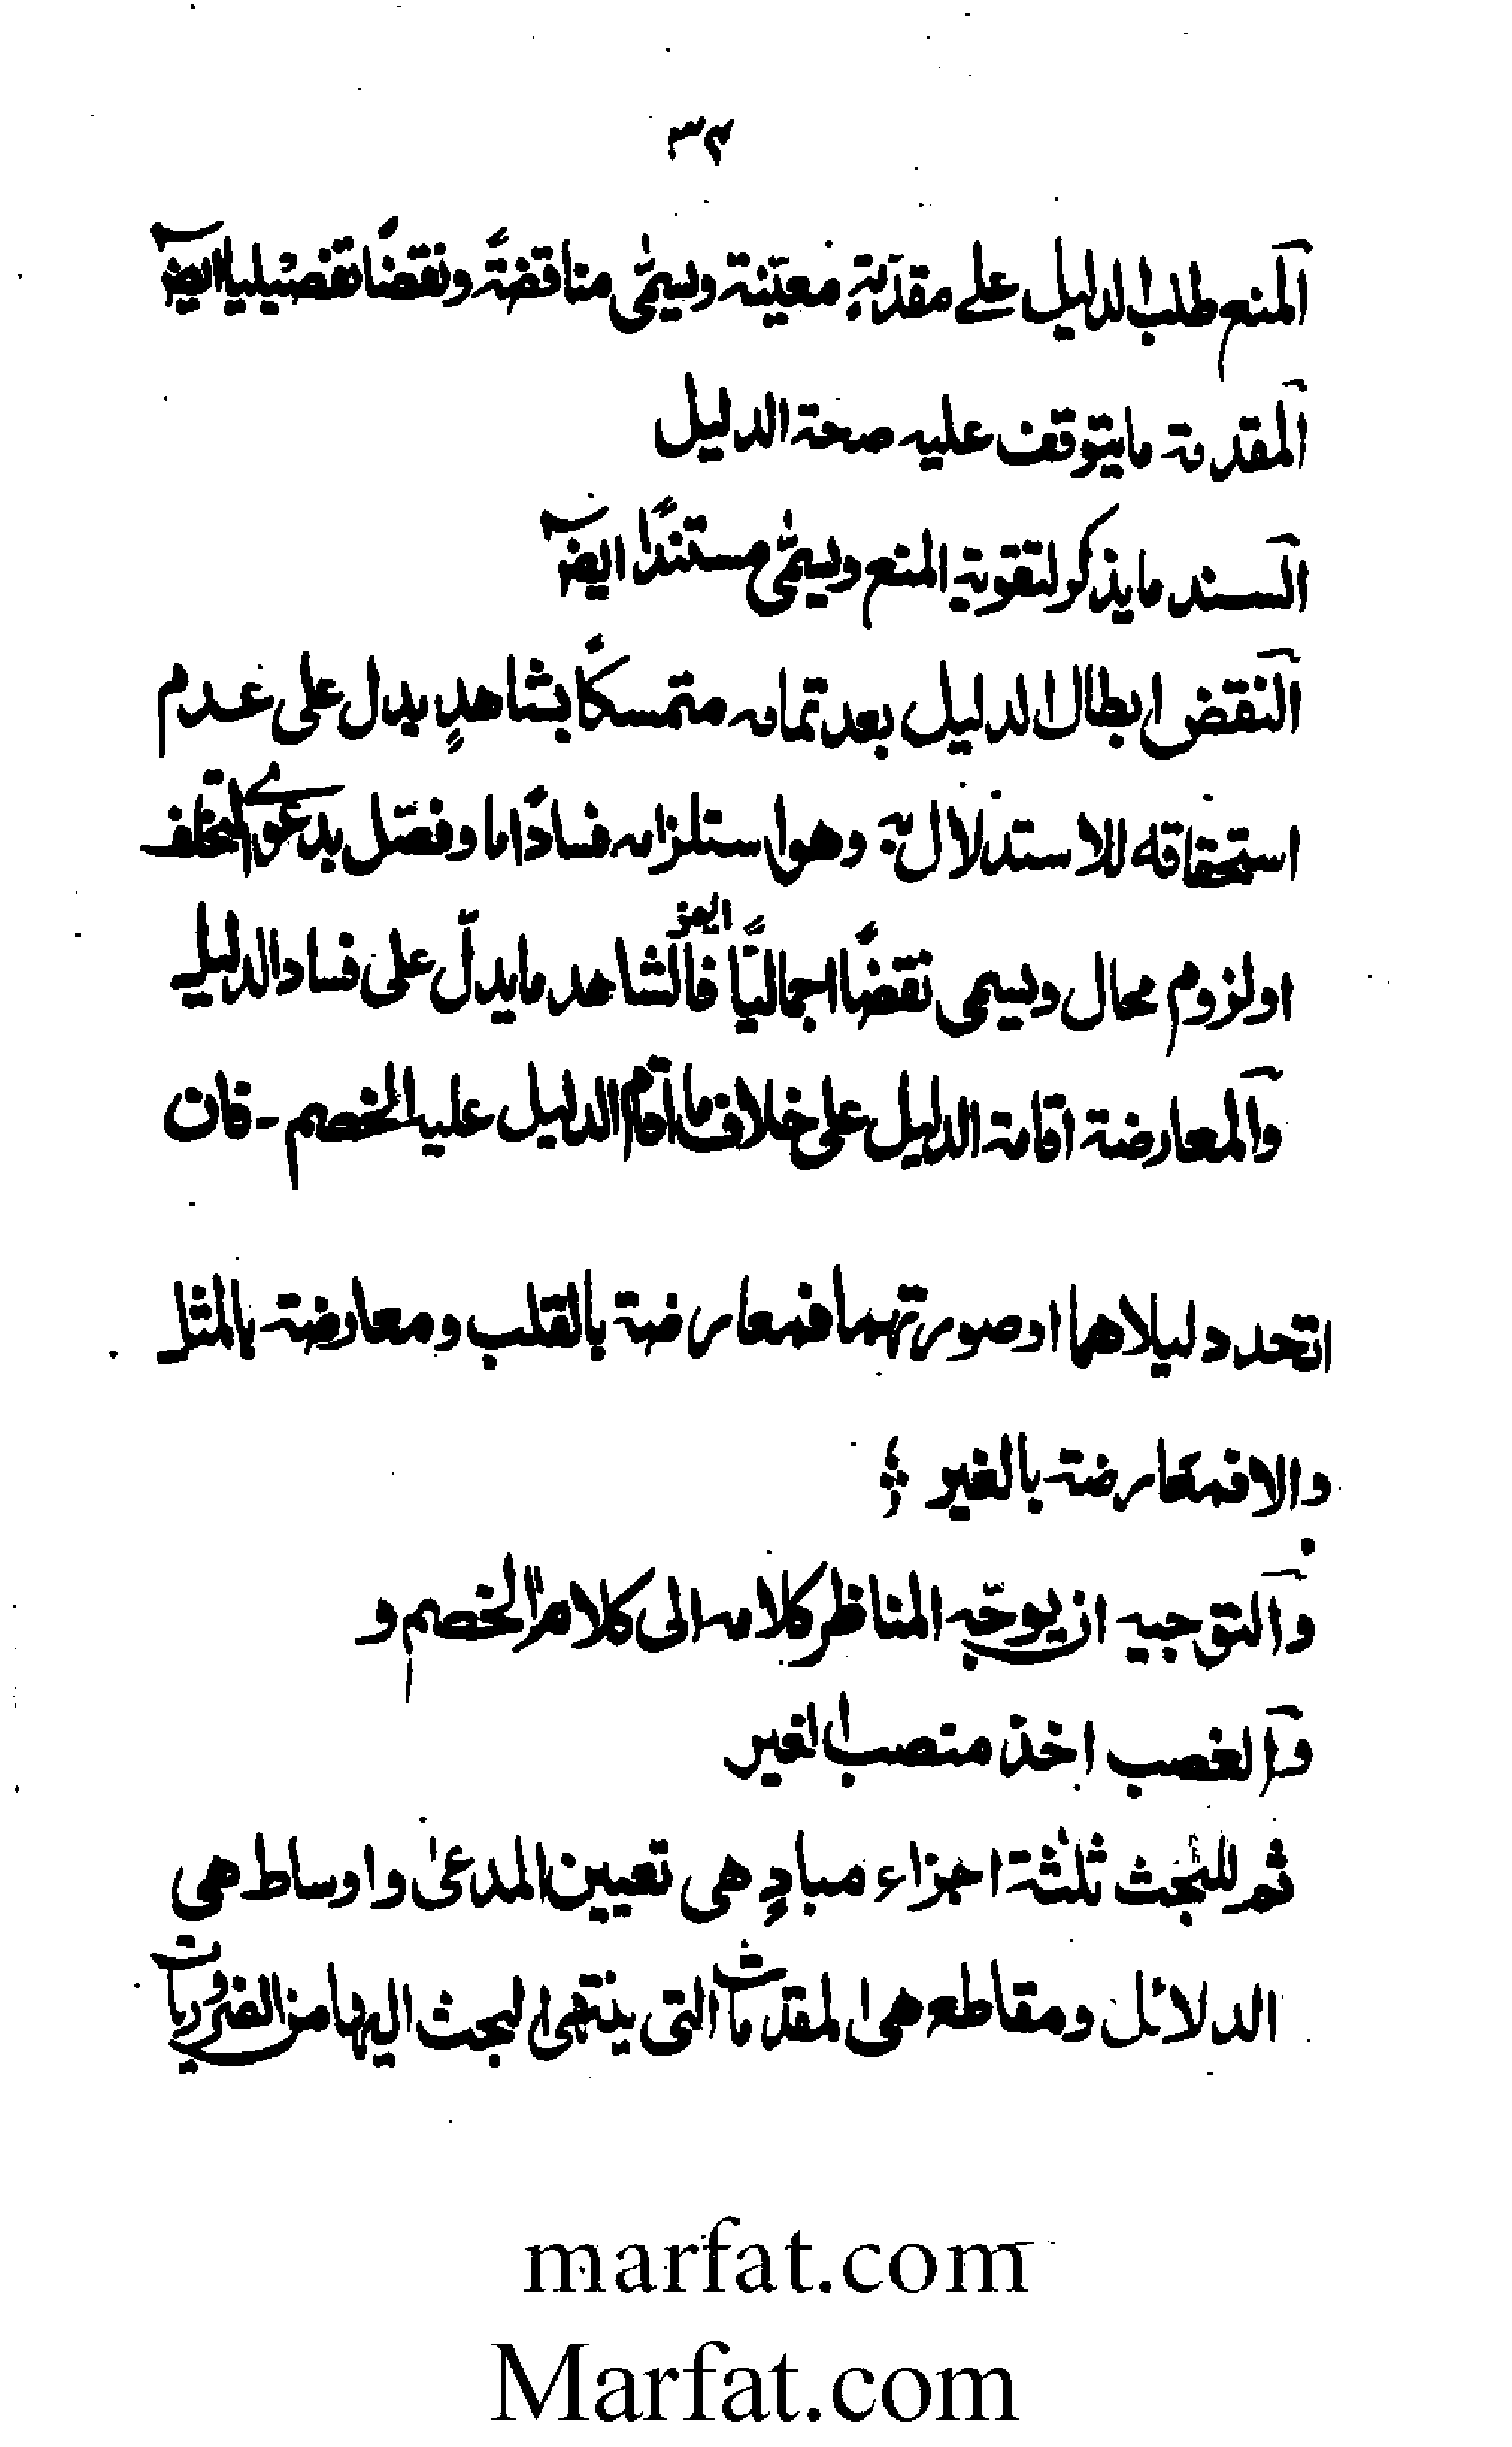 ٣٢
آلمنع طلب الدليل علے مقدمةٍ معيّنة ويسمّٰى مناقضةً ونقضًا تفصيليا ايضا
آلمقدمة مايتوقف عليه صحة الدليل
آلسند مايذكر لتقوية المنع ويسمّٰى مستندًا ايضا
آلنقض ابطال الدليل بعد تمامه متمسكًا بشاهدٍ يدل على عدم
استحقاقه للاستدلال به وهو استلزامه فسادًا ما وفصّل بدعوے التخلف
اولزوم محال ويسمى نقضًا اجماليًّا ايضا فالشاهد مايدلّ على فساد الدليل
وآلمعارضة اقامة الدليل على خلاف ما اقام الدليل عليه الخصم - فان
اتحد دليلاهما اوصورتهما فمعارضة بالقلب ومعارضة بالمثل
والا فمعارضة بالغير
وآلتوجيه ان يوجّه المناظر كلامه الى كلام الخصم و
وآلغصب اخذ منصب الغير
ثم للبحث ثلٰثة اجزاء مبادٍ هى تعيين المدعىٰ واوساط هى
الدلائل ومقاطع هى المقدمات التى ينتهى البحث اليها من الضروريات
marfat.com
Marfat.com